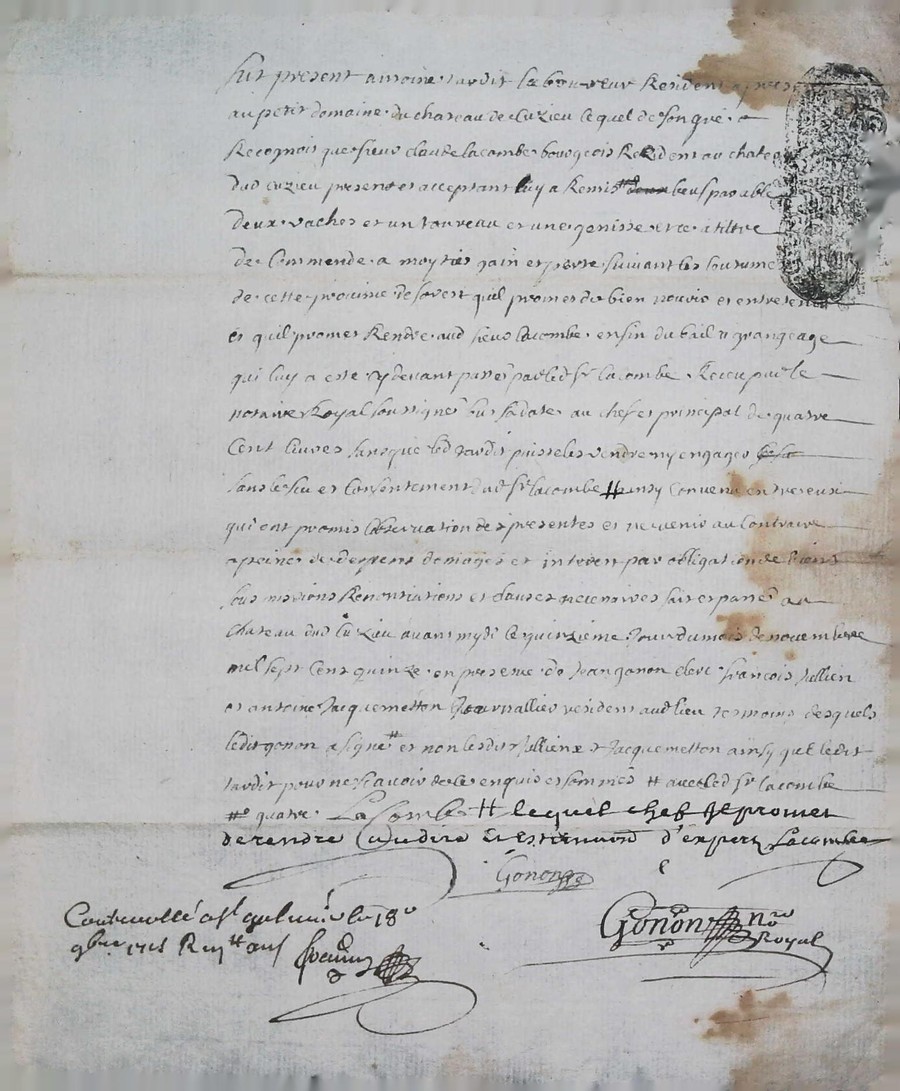 fut present antoine tardit laboureur Resident a pres
au petit domaine du chateau de Cuzieu lequel de son gré a
Recognois que sieur claude lacombe bourgeois Resident au chateau
dud cuzieu present et acceptant luy a Remis # deux beufs par able
deux vaches et un taureau et une genisse et ce a tiltre
de Commende a moytiés gain et perte suivant les coutume
de cette province de forest quil promet de bien nourir et entretenir
et quil promet Rendre aud sieur lacombe en fin du bail a grangeage
qui luy a esté cy devant passé par led sr lacombe Receu par le
notaire Royal soussigné sur sa date au chef et principal de quatre
Cent livres sans que led tardit puisse les vendre ny engager
sans le sceu et Consentement dud sr lacombe # ainsy convenu entre eux
qui ont promis l'observation des presentes et ne venir au Contraire
a peine de despens domages et interest par obligation de biens
sous missions Renontiations et clauses necessaires fait et passé au
chateau dud Cuzieu avant mydi le quinzieme Jour du mois de novembre
mil sept Cent quinze en presence de Jean gonon clerc francois Jullien
et antoine Jacquemetton Journallier resident aud lieu tesmoins desquels
ledit gonon a signé # et non lesdit Jullien et Jacquemetton ainsy que ledit
tardit pour ne scavoir de ce enquis et sommés # avec led sr lacombe
## quatre Lacombe # lequel chef Je promet
de rendre au dire et estimation d'expert Lacombe
Gonon
Gonon nore
Royal
Controllé a st galmier le 18e
9bre 1715 R